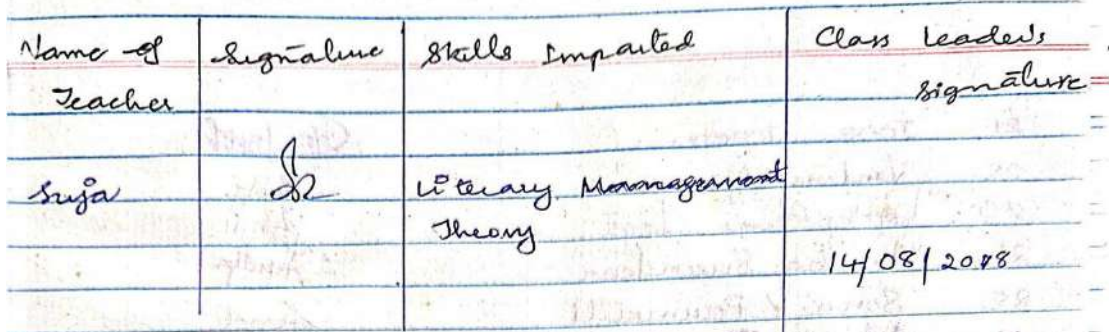 Name of Signature Skills Imparted Class Leader's
Teacher signature
Suja Literary Management
Theory
14/08/2018